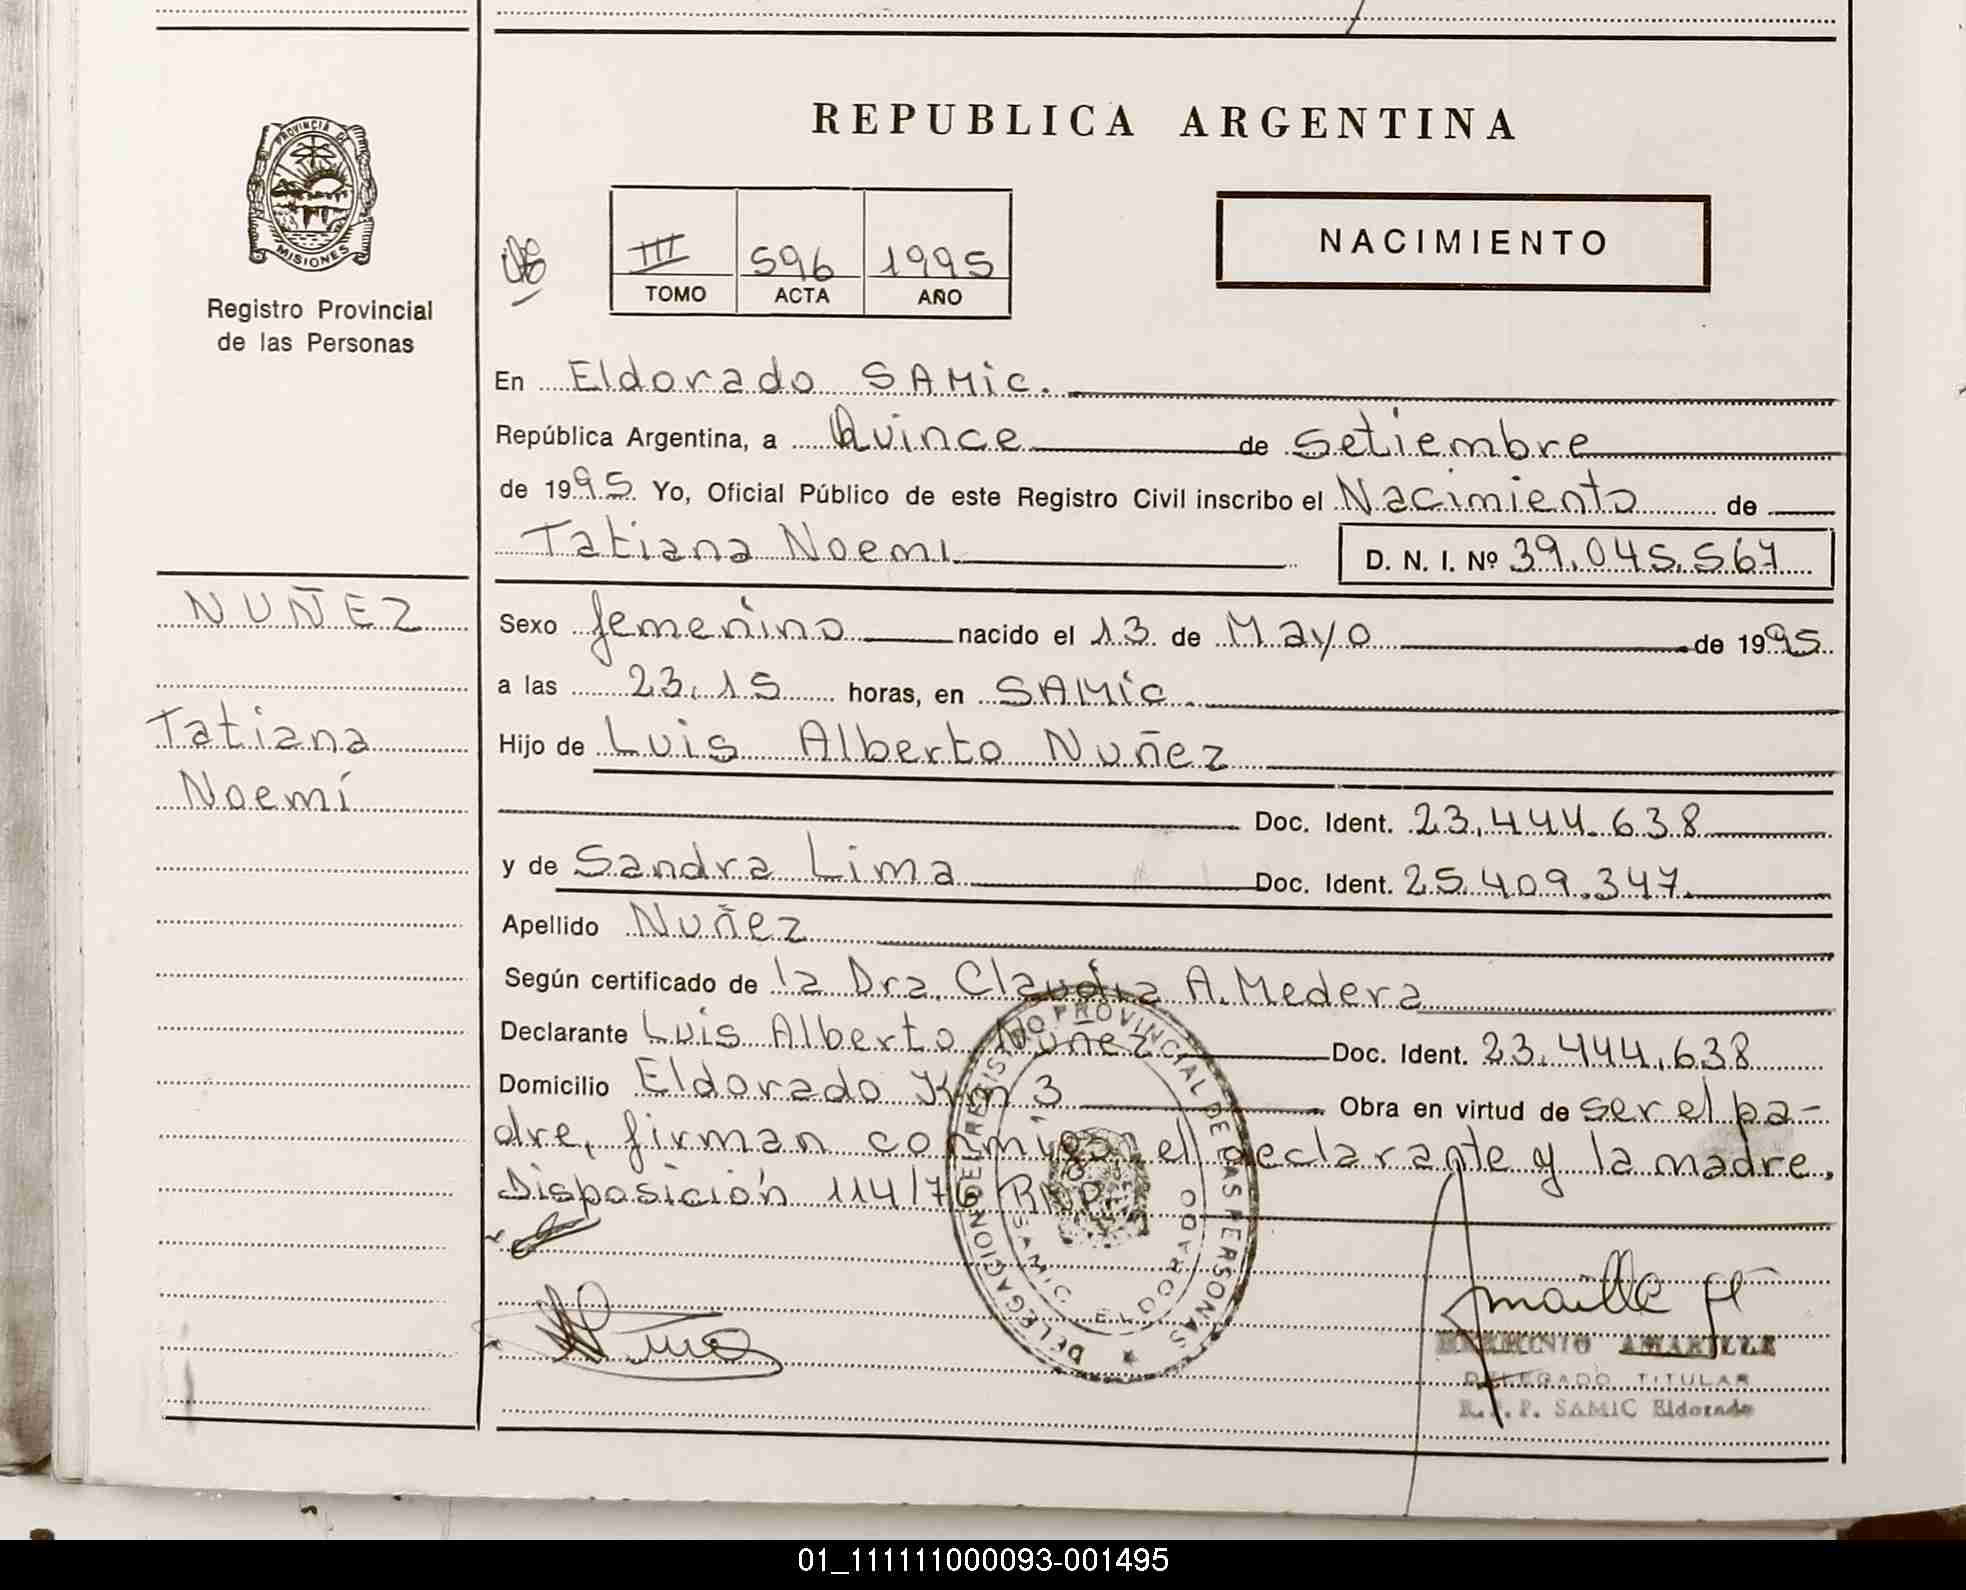 REPUBLICA ARGENTINA
PROVINCIA DE
MISIONES
Registro Provincial
de las Personas
III 596 1995
TOMO ACTA AÑO
NACIMIENTO
En Eldorado SAMic.
República Argentina, a Quince de setiembre
de 1995 Yo, Oficial Público de este Registro Civil inscribo el Nacimiento de
Tatiana Noemi D. N. I. Nº 39.045.567
NUÑEZ
Tatiana
Noemí
Sexo femenino nacido el 13 de Mayo de 1995
a las 23.15 horas, en SAMic.
Hijo de Luis Alberto Nuñez
Doc. Ident. 23.444.638
y de Sandra Lima Doc. Ident. 25.409.347.
Apellido Nuñez
Según certificado de la Dra. Claudia A. Medera
Declarante Luis Alberto Nuñez Doc. Ident. 23.444.638
Domicilio Eldorado Km 3 Obra en virtud de ser el pa-
dre, firman conmigo el declarante y la madre.
Disposición 114/76 R.P.P.
DELEGACION DEL REGISTRO PROVINCIAL DE LAS PERSONAS
SAMIC ELDORADO
HERMINIO AMARILLE
DELEGADO TITULAR
R.P.P. SAMIC Eldorado
01_111111000093-001495